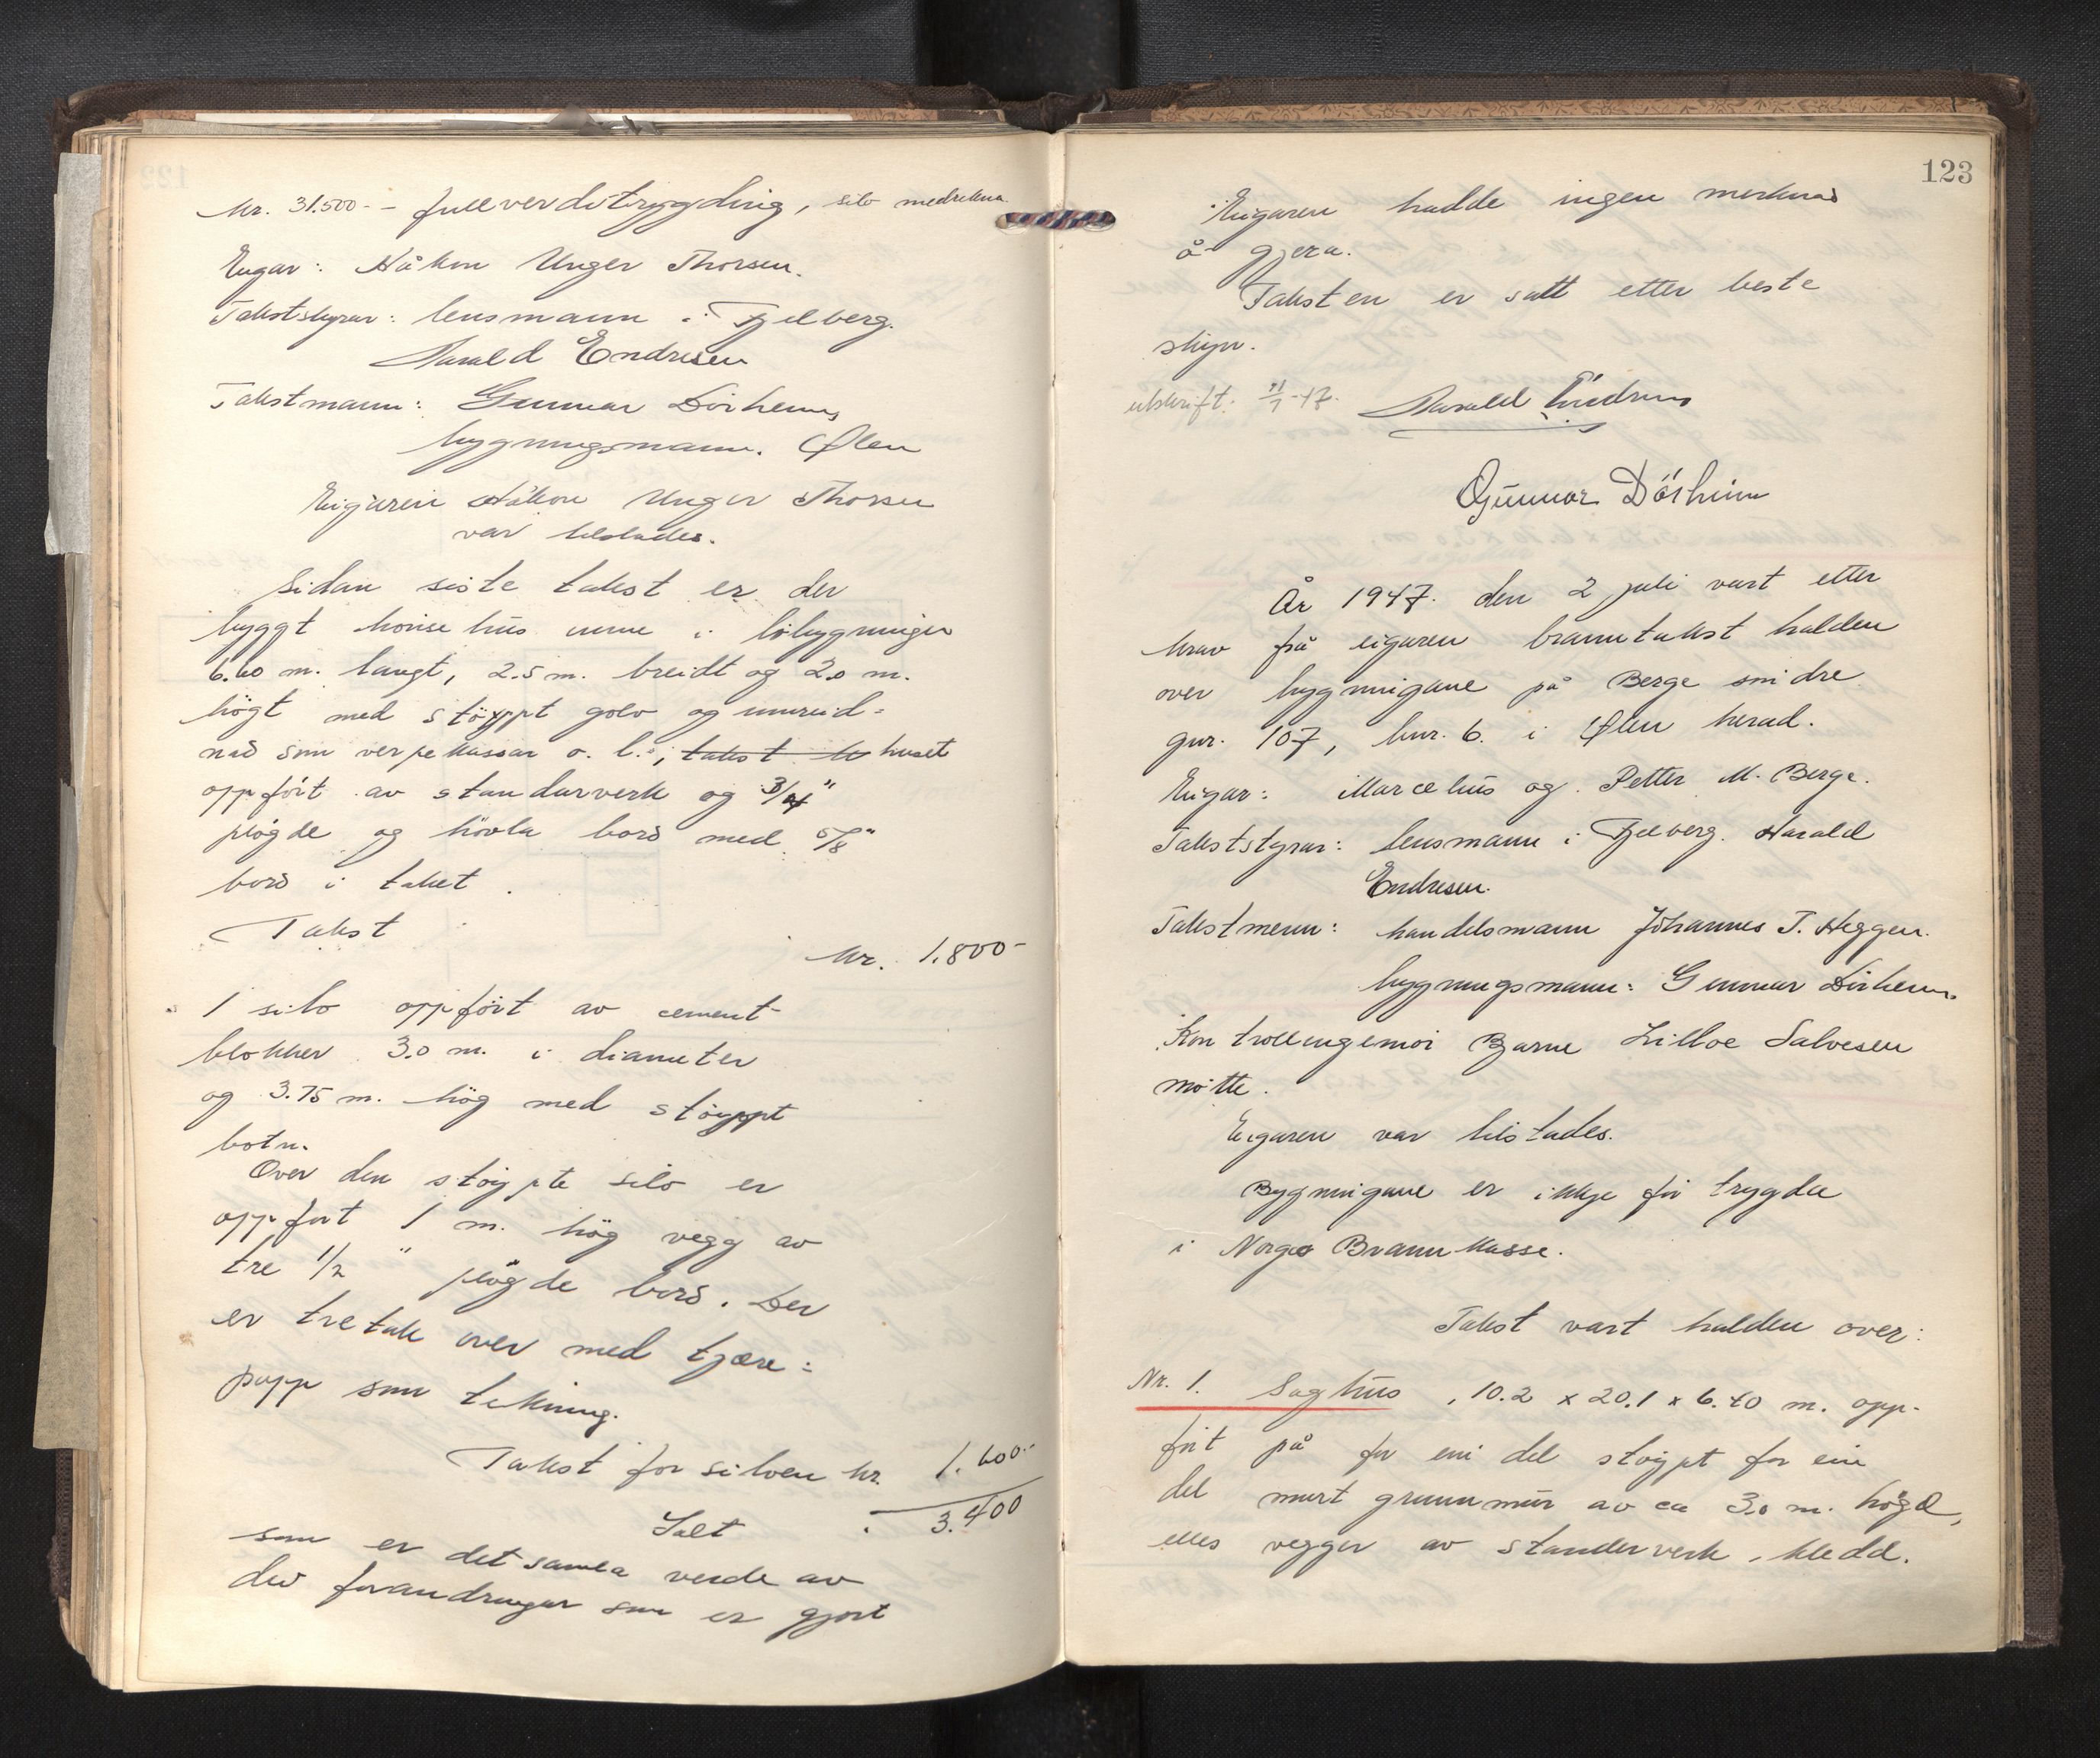 kr. 31.500.- - fullverditrygding, silo medrekna.
Eigar: Håkon Unger Thorsen.
Takststyrar: lensmann i Fjelberg.
Harald Endresen
Takstmann: Gunnar Dörheim,
bygningsmann. Ølen
Eigaren Håkon Unger Thorsen
var tilstades.
Sidan siste takst er der
byggt hönsehus inne i löbygningen
6.60 m. langt, 2.5 m. breidt og 2.0 m.
högt med stöypt golv og innreid-
nad som verpekassar o. l.; takst huset
oppfört av standarverk og 3/4"
plögde og hövla bord med 5/8"
bord i taket.
Takst
kr. 1.800-
1 silo oppfört av cement-
blokker 3.0 m. i diameter
og 3.75 m. hög med stöypt
botn.
Over den stöypte silo er
oppfört 1 m. hög vegg av
tre 1/2" plögde bord. Der
er tretak over med tjære-
papp som tekning.
Takst for siloen kr. 1.600.-
Ialt 3.400
som er det samla verde av
dei forandringar som er gjort
123
Eigaren hadde ingen merknad
å gjera.
Taksten er satt etter beste
skjyn.
utskrift: 11/7-47. Harald Endresen
Gunnar Dörheim
År 1947. den 2 juli vart etter
krav frå eigaren branntakst halden
over bygningane på Berge smidre
gnr. 107, bnr. 6. i Ølen herad.
Eigar: Marcelius og Petter M. Berge.
Takststyrar: lensmann i Fjelberg. Harald
Endresen.
Takstmenn: handelsmann Johannes T. Heggen.
bygningsmann: Gunnar Dörheim.
Kontrollingeniör Bjarne Lilloe Salvesen
mötte.
Eigaren var tilstades.
Bygningane er ikkje för trygda
i Norges Brannkasse.
Takst vart halden over:
Nr. 1. Saghus, 10.2 x 20.1 x 6.40 m. opp-
fört på for ein del stöypt for ein
del murt grunnmur av ca 3.0 m. högd,
elles vegger av standerverk, kledd.